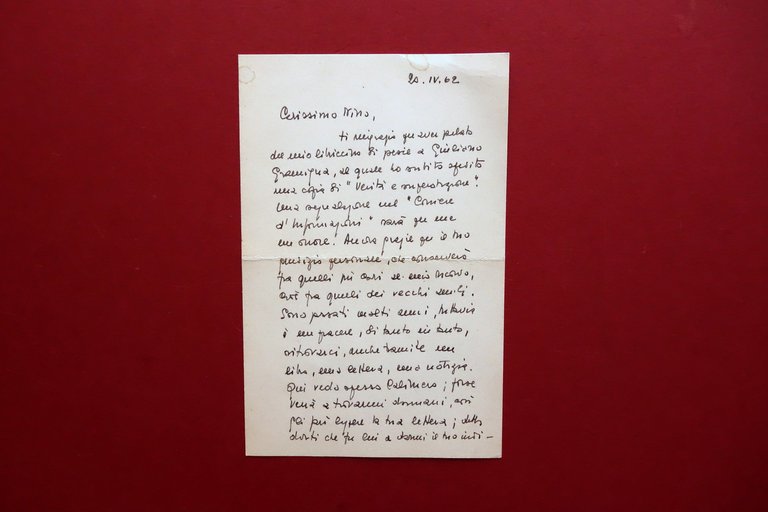 20.IV.62
Carissimo Nino,
ti ringrazio per aver parlato
del mio libriccino di poesie a Giuliano
Gramigna, al quale ho subito spedito
una copia di "Verità e superstizione".
Una segnalazione nel "Corriere
d'Informazioni" sarà per me
un onore. Ancora grazie per il tuo
giudizio personale, che conserverò
fra quelli più cari al mio ricordo,
cioè fra quelli dei vecchi amici.
Sono passati molti anni, tuttavia
è un piacere, di tanto in tanto,
ritrovarci, anche tramite un
libro, una lettera, una notizia.
Qui vedo spesso ; forse
verrà a trovarmi domani, così
gli farò leggere la tua lettera;
che fu lui a darmi il tuo indi-